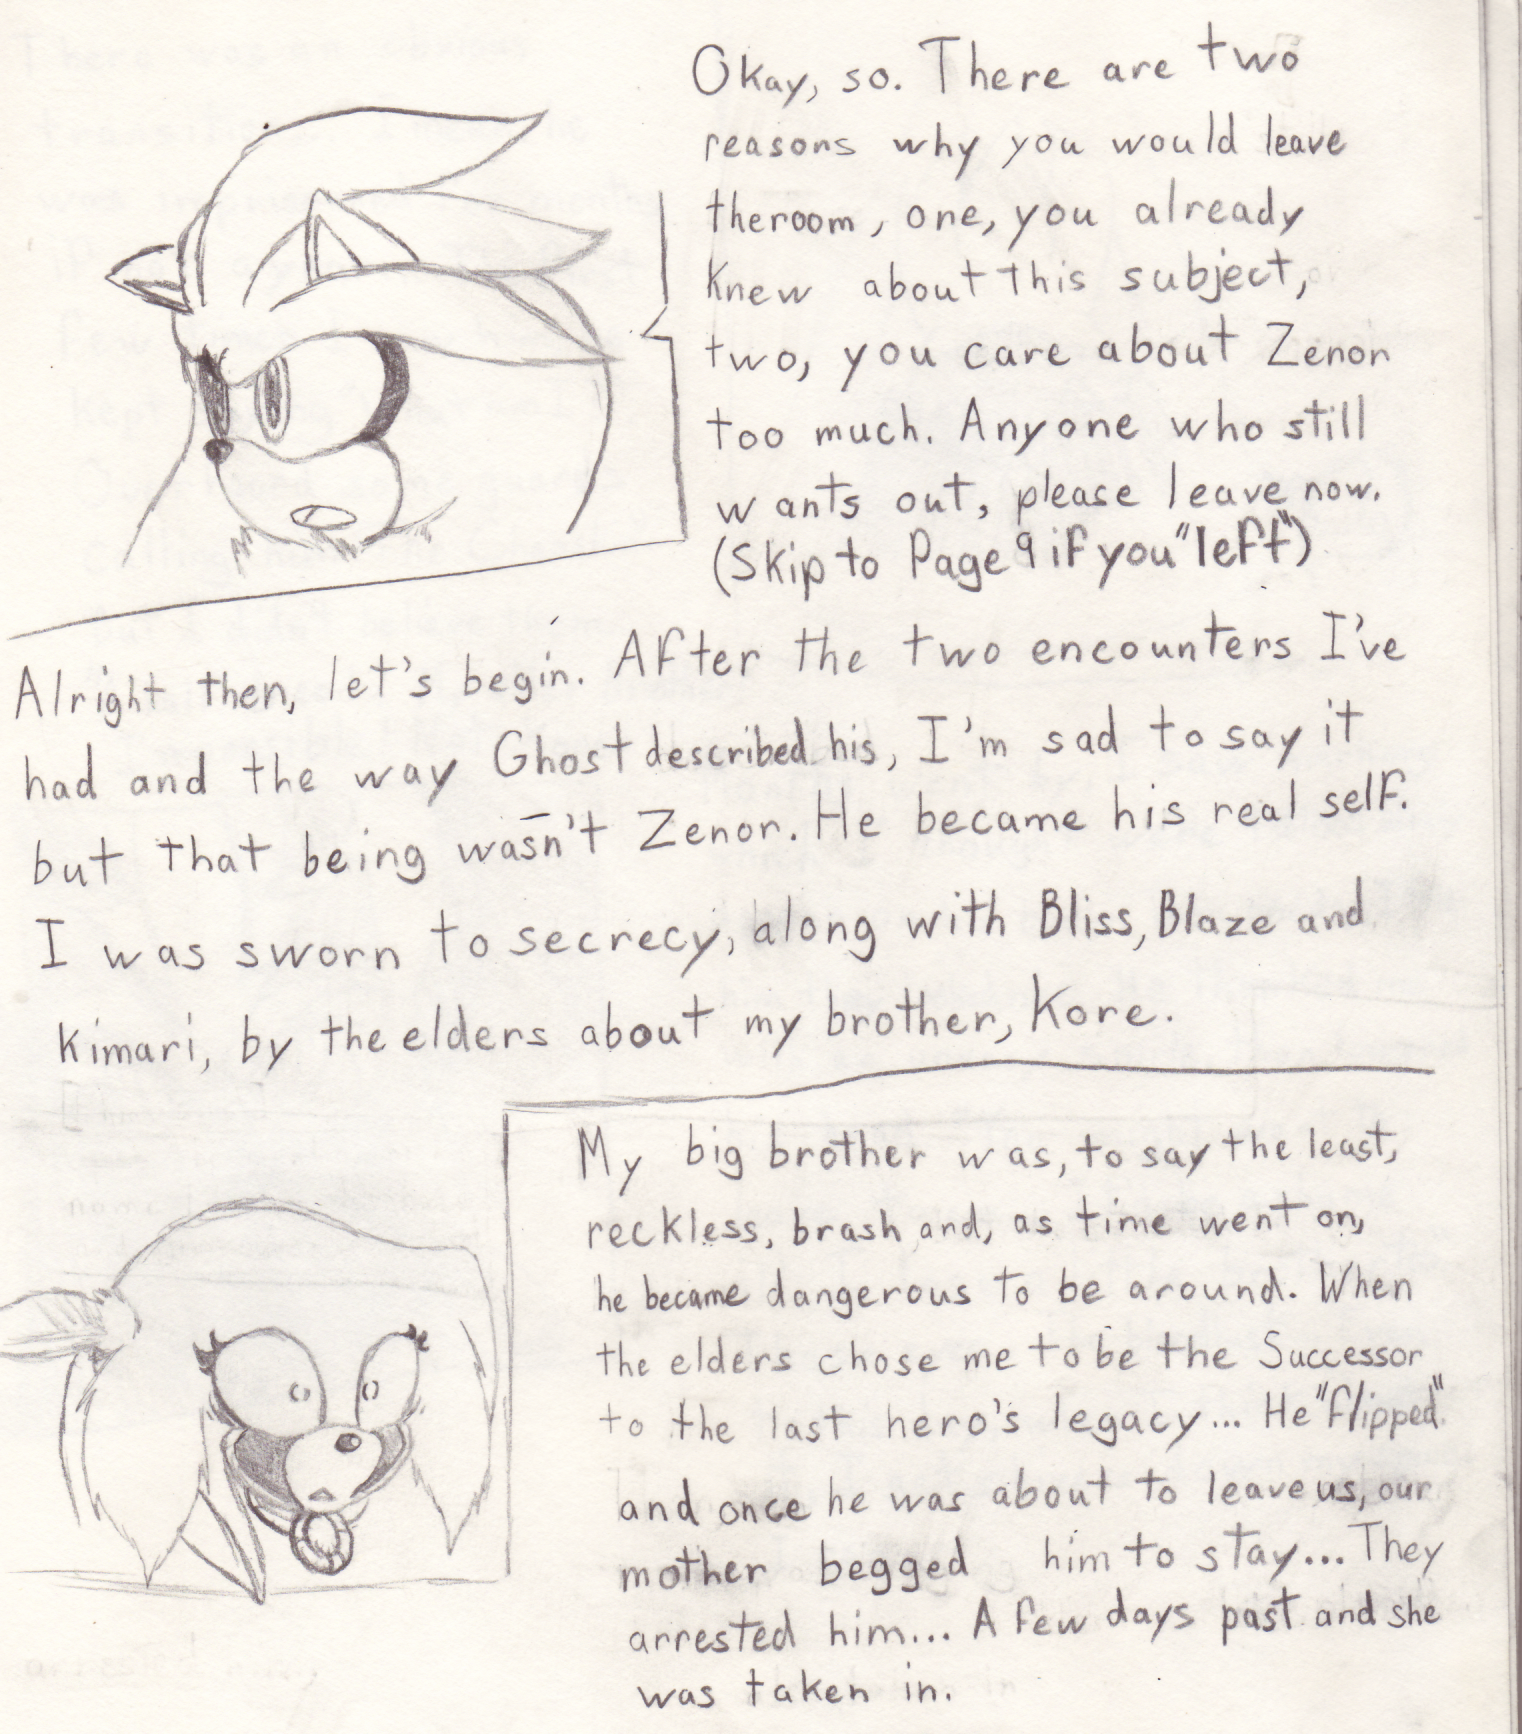 Okay, so. There are two
reasons why you would leave
theroom, one, you already
knew about this subject,
two, you care about Zenor
too much. Anyone who still
wants out, please leave now.
(Skip to Page 9 if you "left")
Alright then, let's begin. After the two encounters I've
had and the way Ghost described his, I'm sad to say it
but that being wasn't Zenor. He became his real self.
I was sworn to secrecy, along with Bliss, Blaze and
Kimari, by the elders about my brother, Kore.
My big brother was, to say the least,
reckless, brash and, as time went on,
he became dangerous to be around. When
the elders chose me to be the Successor
to the last hero's legacy... He "flipped"
and once he was about to leave us, our
mother begged him to stay... They
arrested him... A few days past and she
was taken in.